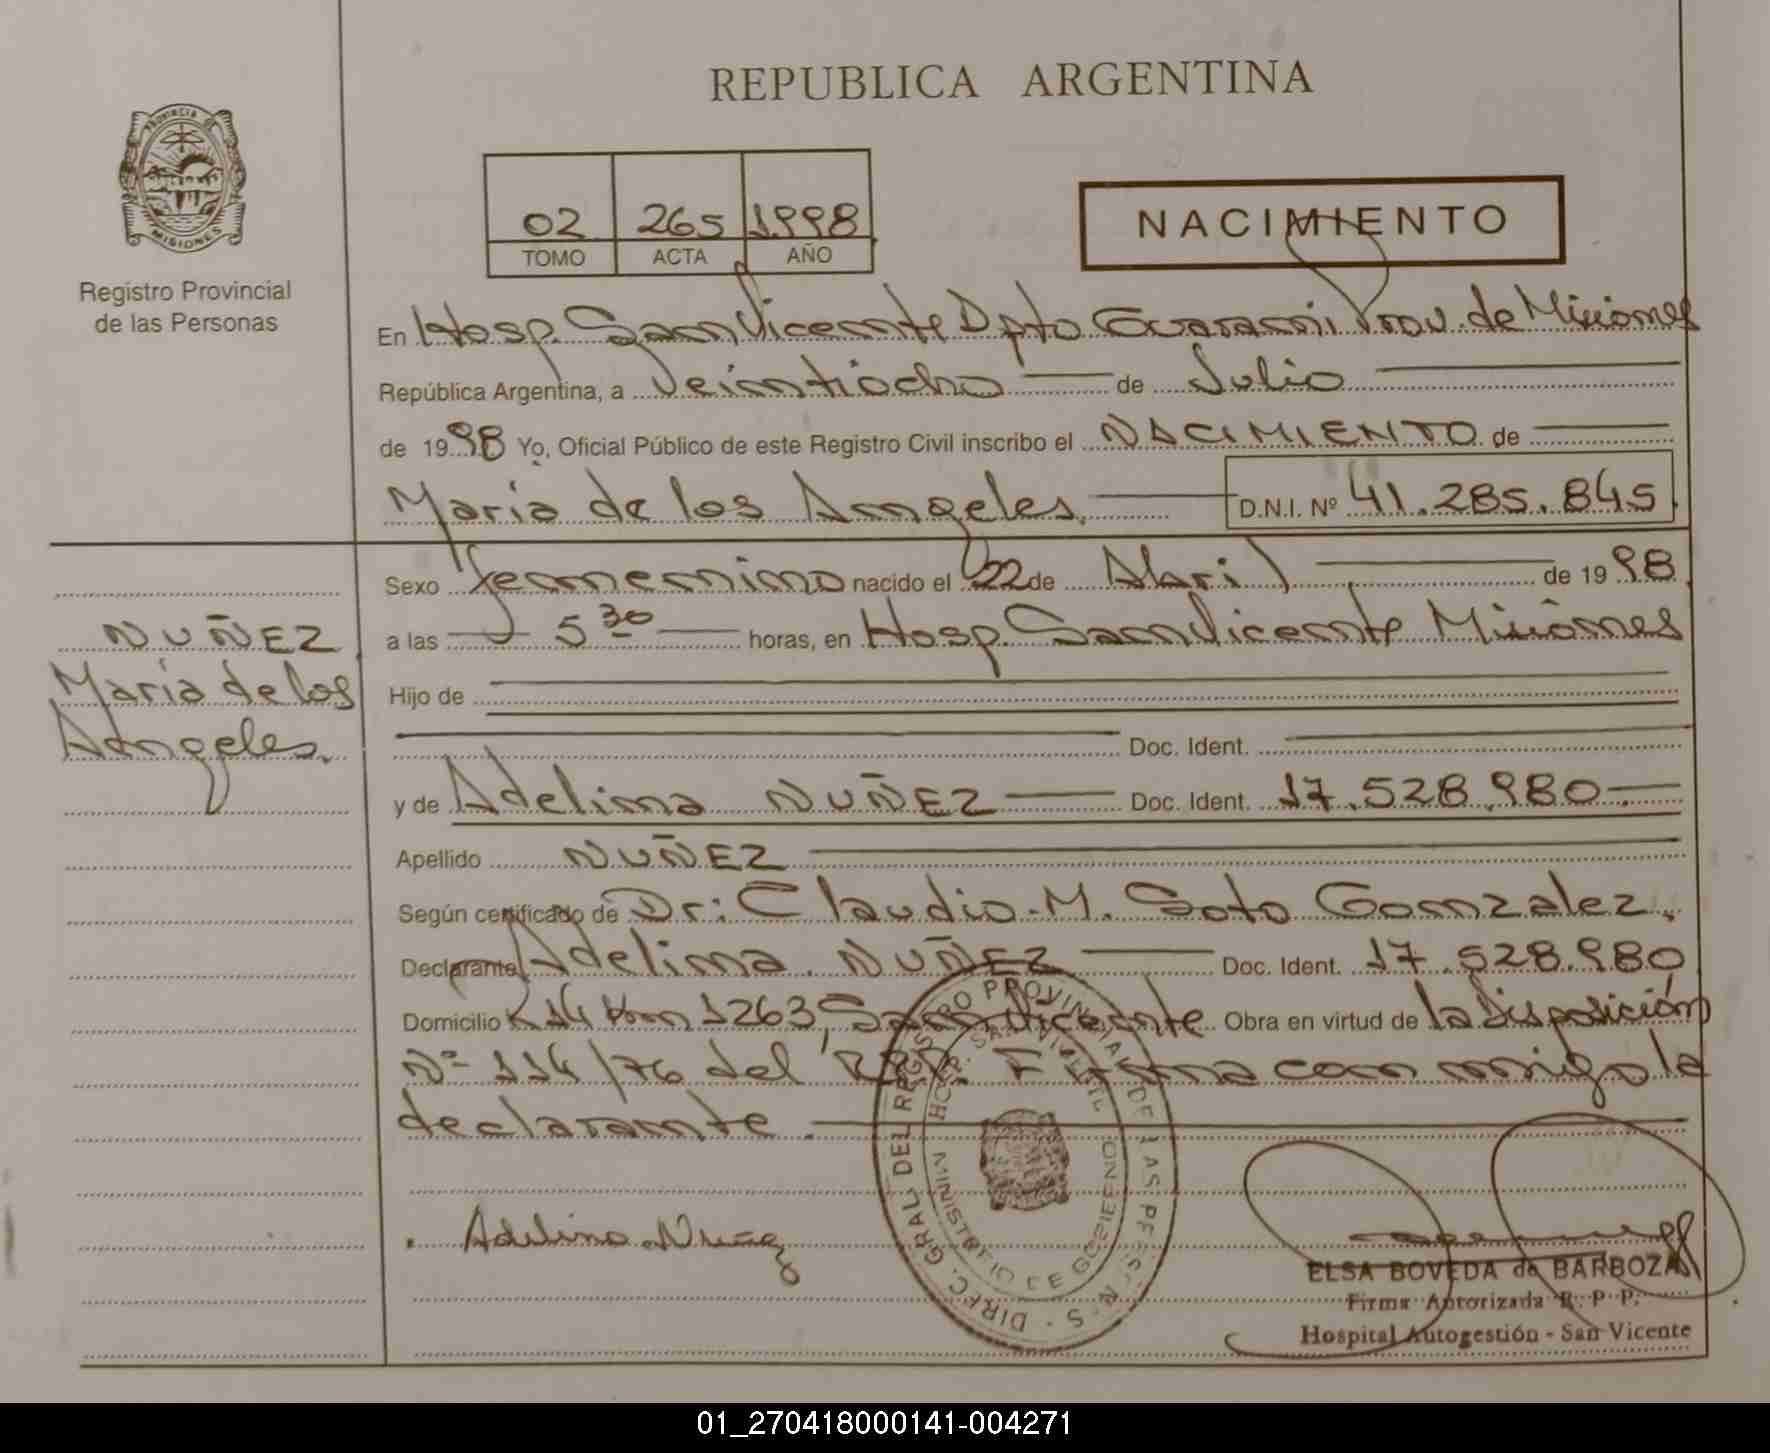 REPUBLICA ARGENTINA
PROVINCIA DE
MISIONES
Registro Provincial
de las Personas
02 265 1998
TOMO ACTA AÑO
NACIMIENTO
En Hosp. San Vicente Dpto Guarani Prov. de Misiones
República Argentina, a Veintiocho de Julio
de 1998 Yo, Oficial Público de este Registro Civil inscribo el NACIMIENTO de
Maria de los Angeles. D.N.I. Nº 41.285.845
Sexo femenino nacido el 22 de Abril de 1998
a las 5 30 horas, en Hosp. San Vicente Misiones
Hijo de
Doc. Ident.
y de Adelina NUÑEZ Doc. Ident. 17.528.980.
Apellido NUÑEZ
Según certificado de Dr: Claudio. M. Soto Gonzalez.
Declarante Adelina NUÑEZ Doc. Ident. 17.528.980
Domicilio R14 Km 1263, San Vicente Obra en virtud de la disposición
Nº 114/76 del R.P.P. Firma con migo la
declarante.
NUÑEZ
Maria de los
Angeles.
Adelina Nuñez
DIREC. GRAL. DEL REGISTRO PROVINCIAL DE LAS PERSONAS
HOSP. SAN VICENTE
MINISTERIO DE GOBIERNO
ELSA BOVEDA de BARBOZA
Firma Autorizada R. P. P.
Hospital Autogestión - San Vicente
01_270418000141-004271